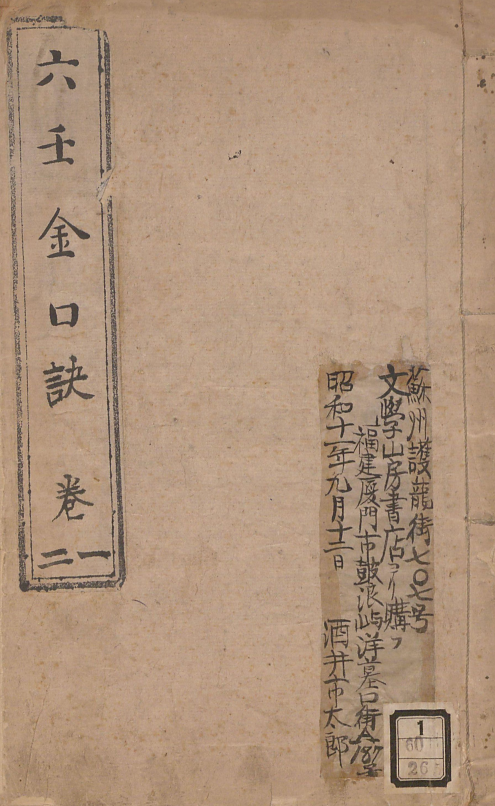 六壬金口訣 卷
一二
蘇州護龍街七〇七号
文學山房書店ヨリ購フ
福建厦門市鼓浪嶼洋墓口街
昭和十一年九月十二日 酒井市太郎
1
60
26